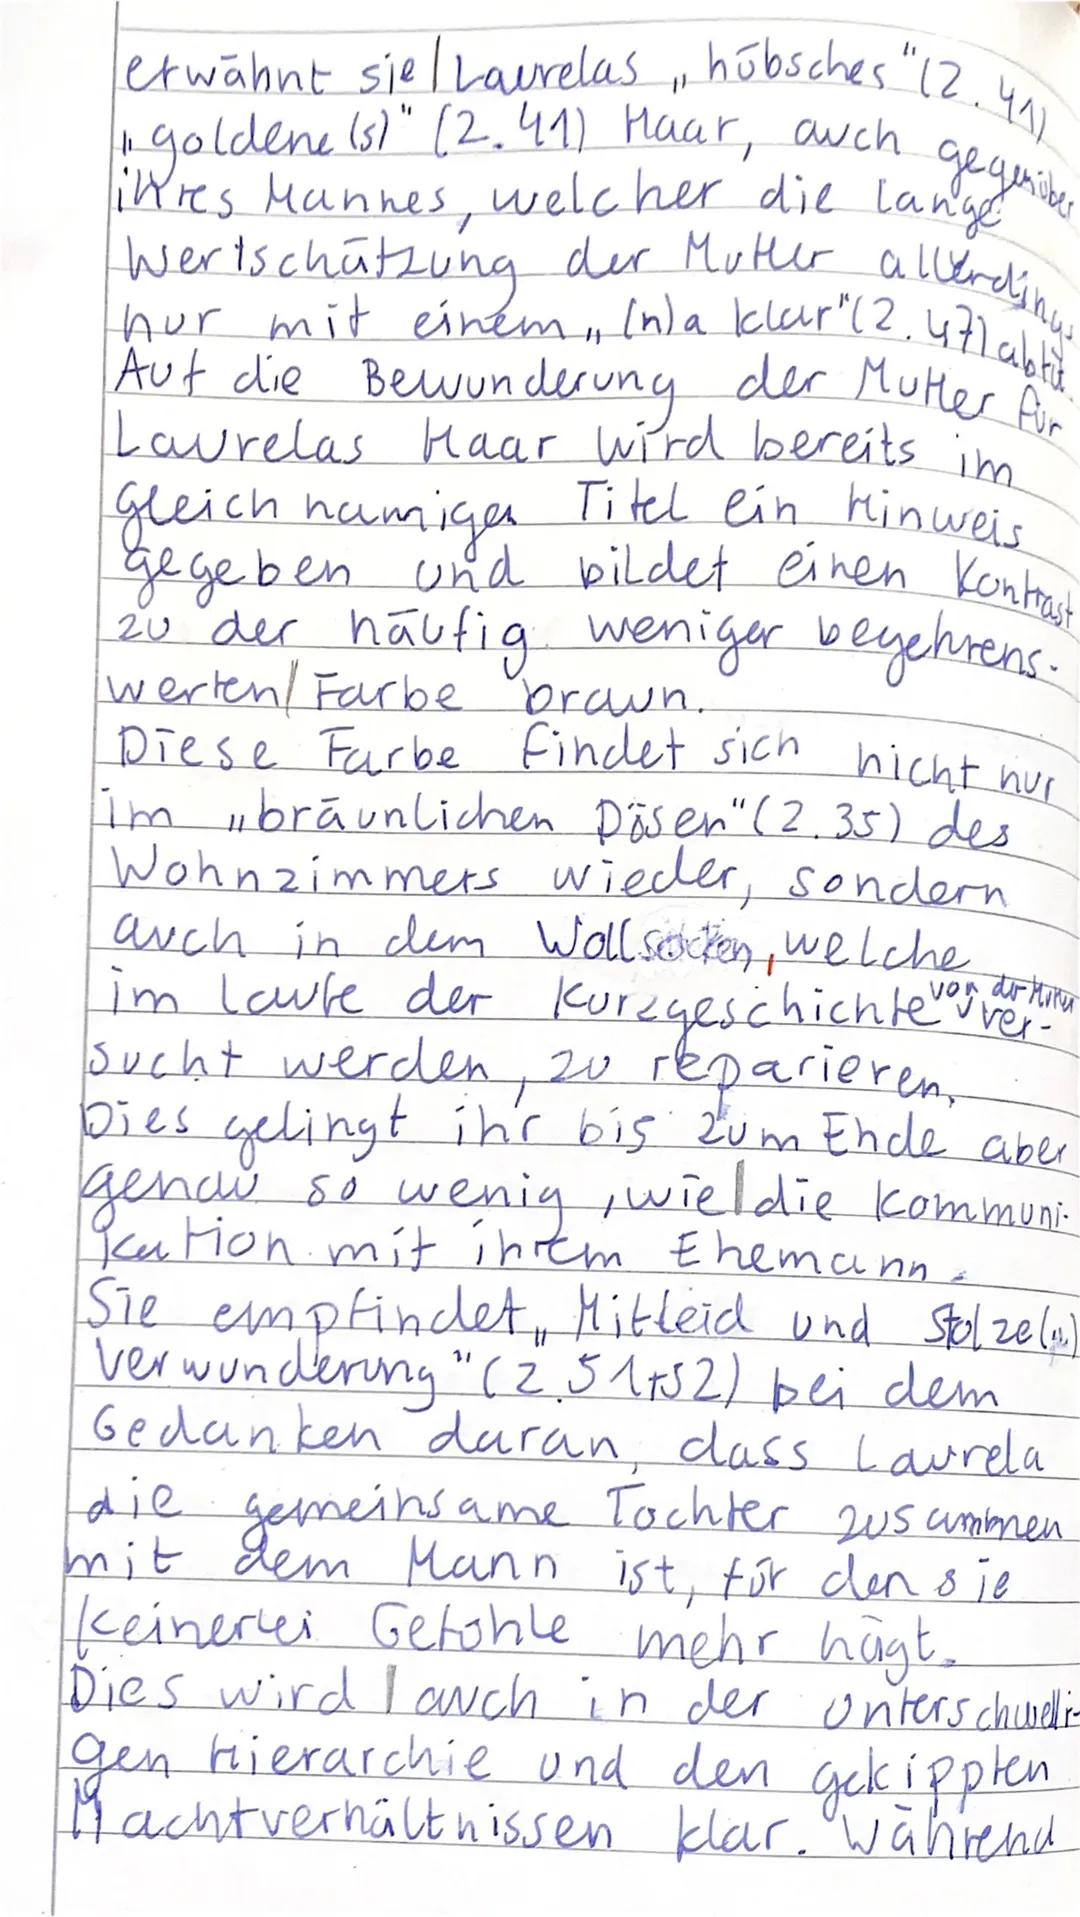 erwähnt sie Laurelas „hübsches" (Z. 41)
„goldene(s)" (Z. 41) Haar, auch gegenüber
ihres Mannes, welcher die lange
Wertschätzung der Mutter allerdings
nur mit einem „(n)a klar" (Z. 47) abtut.
Auf die Bewunderung der Mutter für
Laurelas Haar wird bereits im
gleichnamigen Titel ein Hinweis
gegeben und bildet einen Kontrast
zu der häufig weniger begehrens-
werten Farbe braun.
Diese Farbe findet sich nicht nur
im „bräunlichen Dösen" (Z. 35) des
Wohnzimmers wieder, sondern
auch in dem Wollsocken, welche
im Laufe der Kurzgeschichte von der Mutter ver-
sucht werden, zu reparieren.
Dies gelingt ihr bis zum Ende aber
genau so wenig, wie die Kommuni-
kation mit ihrem Ehemann.
Sie empfindet „Mitleid und Stolze(...)
Verwunderung" (Z. 51+52) bei dem
Gedanken daran, dass Laurela
die gemeinsame Tochter zusammen
mit dem Mann ist, für den sie
keinerlei Gefühle mehr hägt.
Dies wird auch in der unterschwelli-
gen Hierarchie und den gekippten
Machtverhältnissen klar. Während